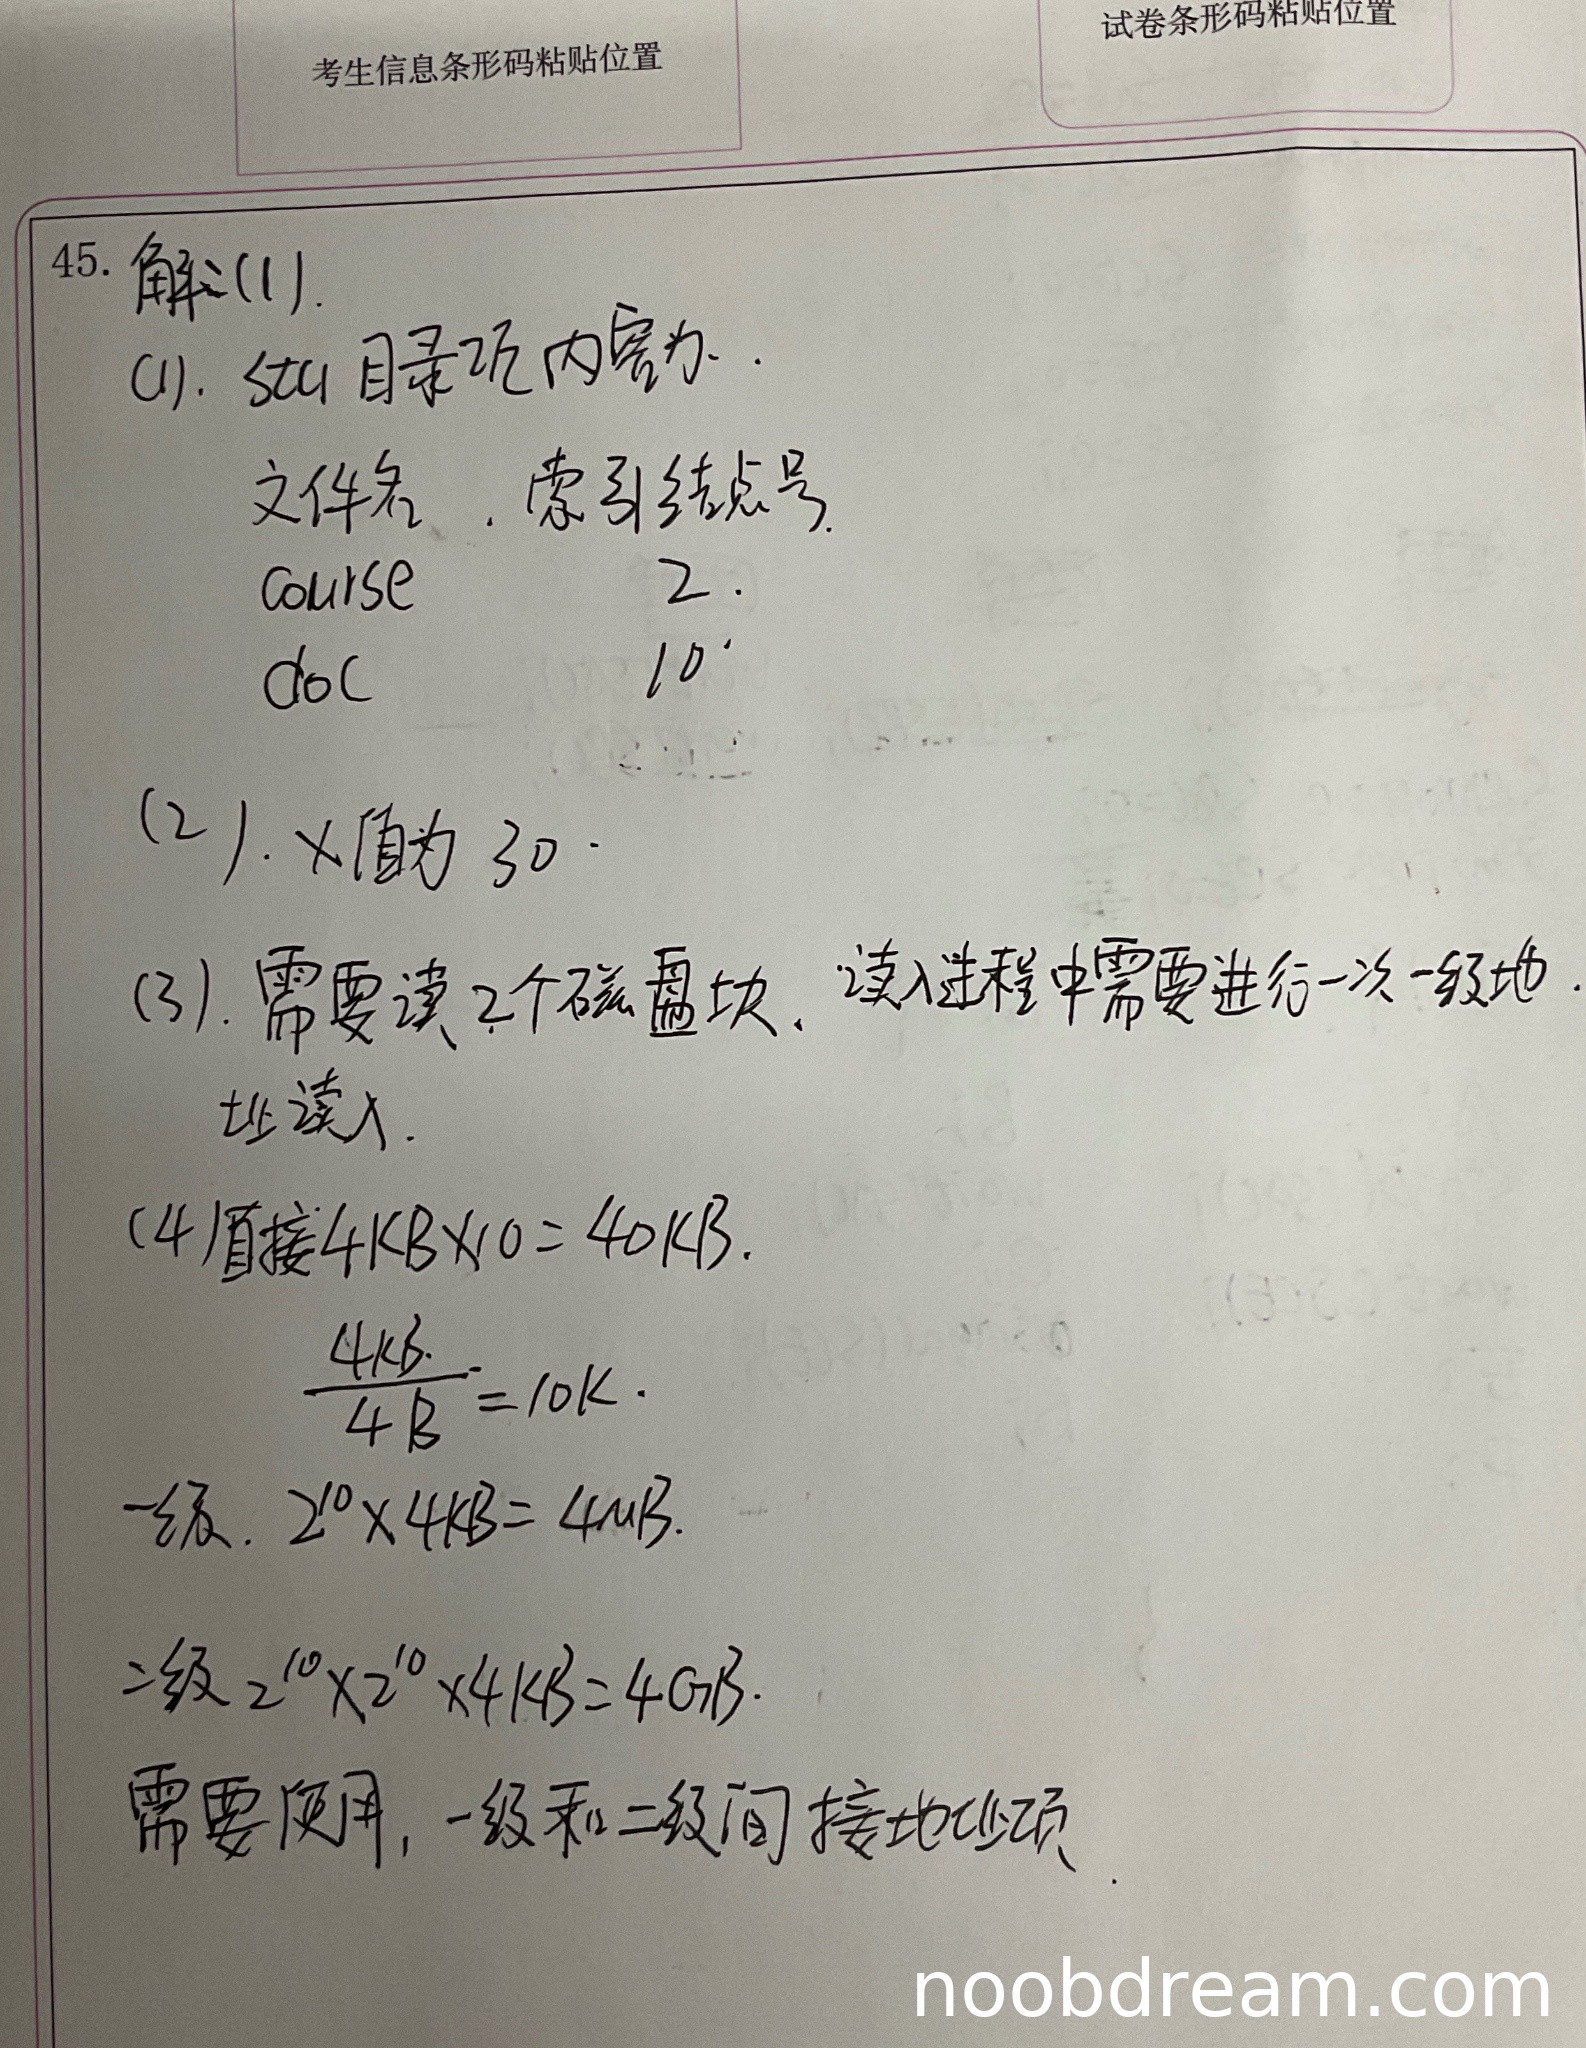 考生信息条形码粘贴位置
试卷条形码粘贴位置
45. 解:(1).
(1). stu 目录项内容为.
文件名 . 索引结点号.
course 2.
doc 10.
(2). x值为 30.
(3). 需要读 2个磁盘块. 读入进程中需要进行一次一级地.
址读入.
(4)直接4KB×10=40KB.
4KB.
4B =10K.
一级. 2^10×4KB=4MB.
二级 2^10×2^10×4KB=4GB.
需要使用, 一级和二级间接地址项.
noobdream.com